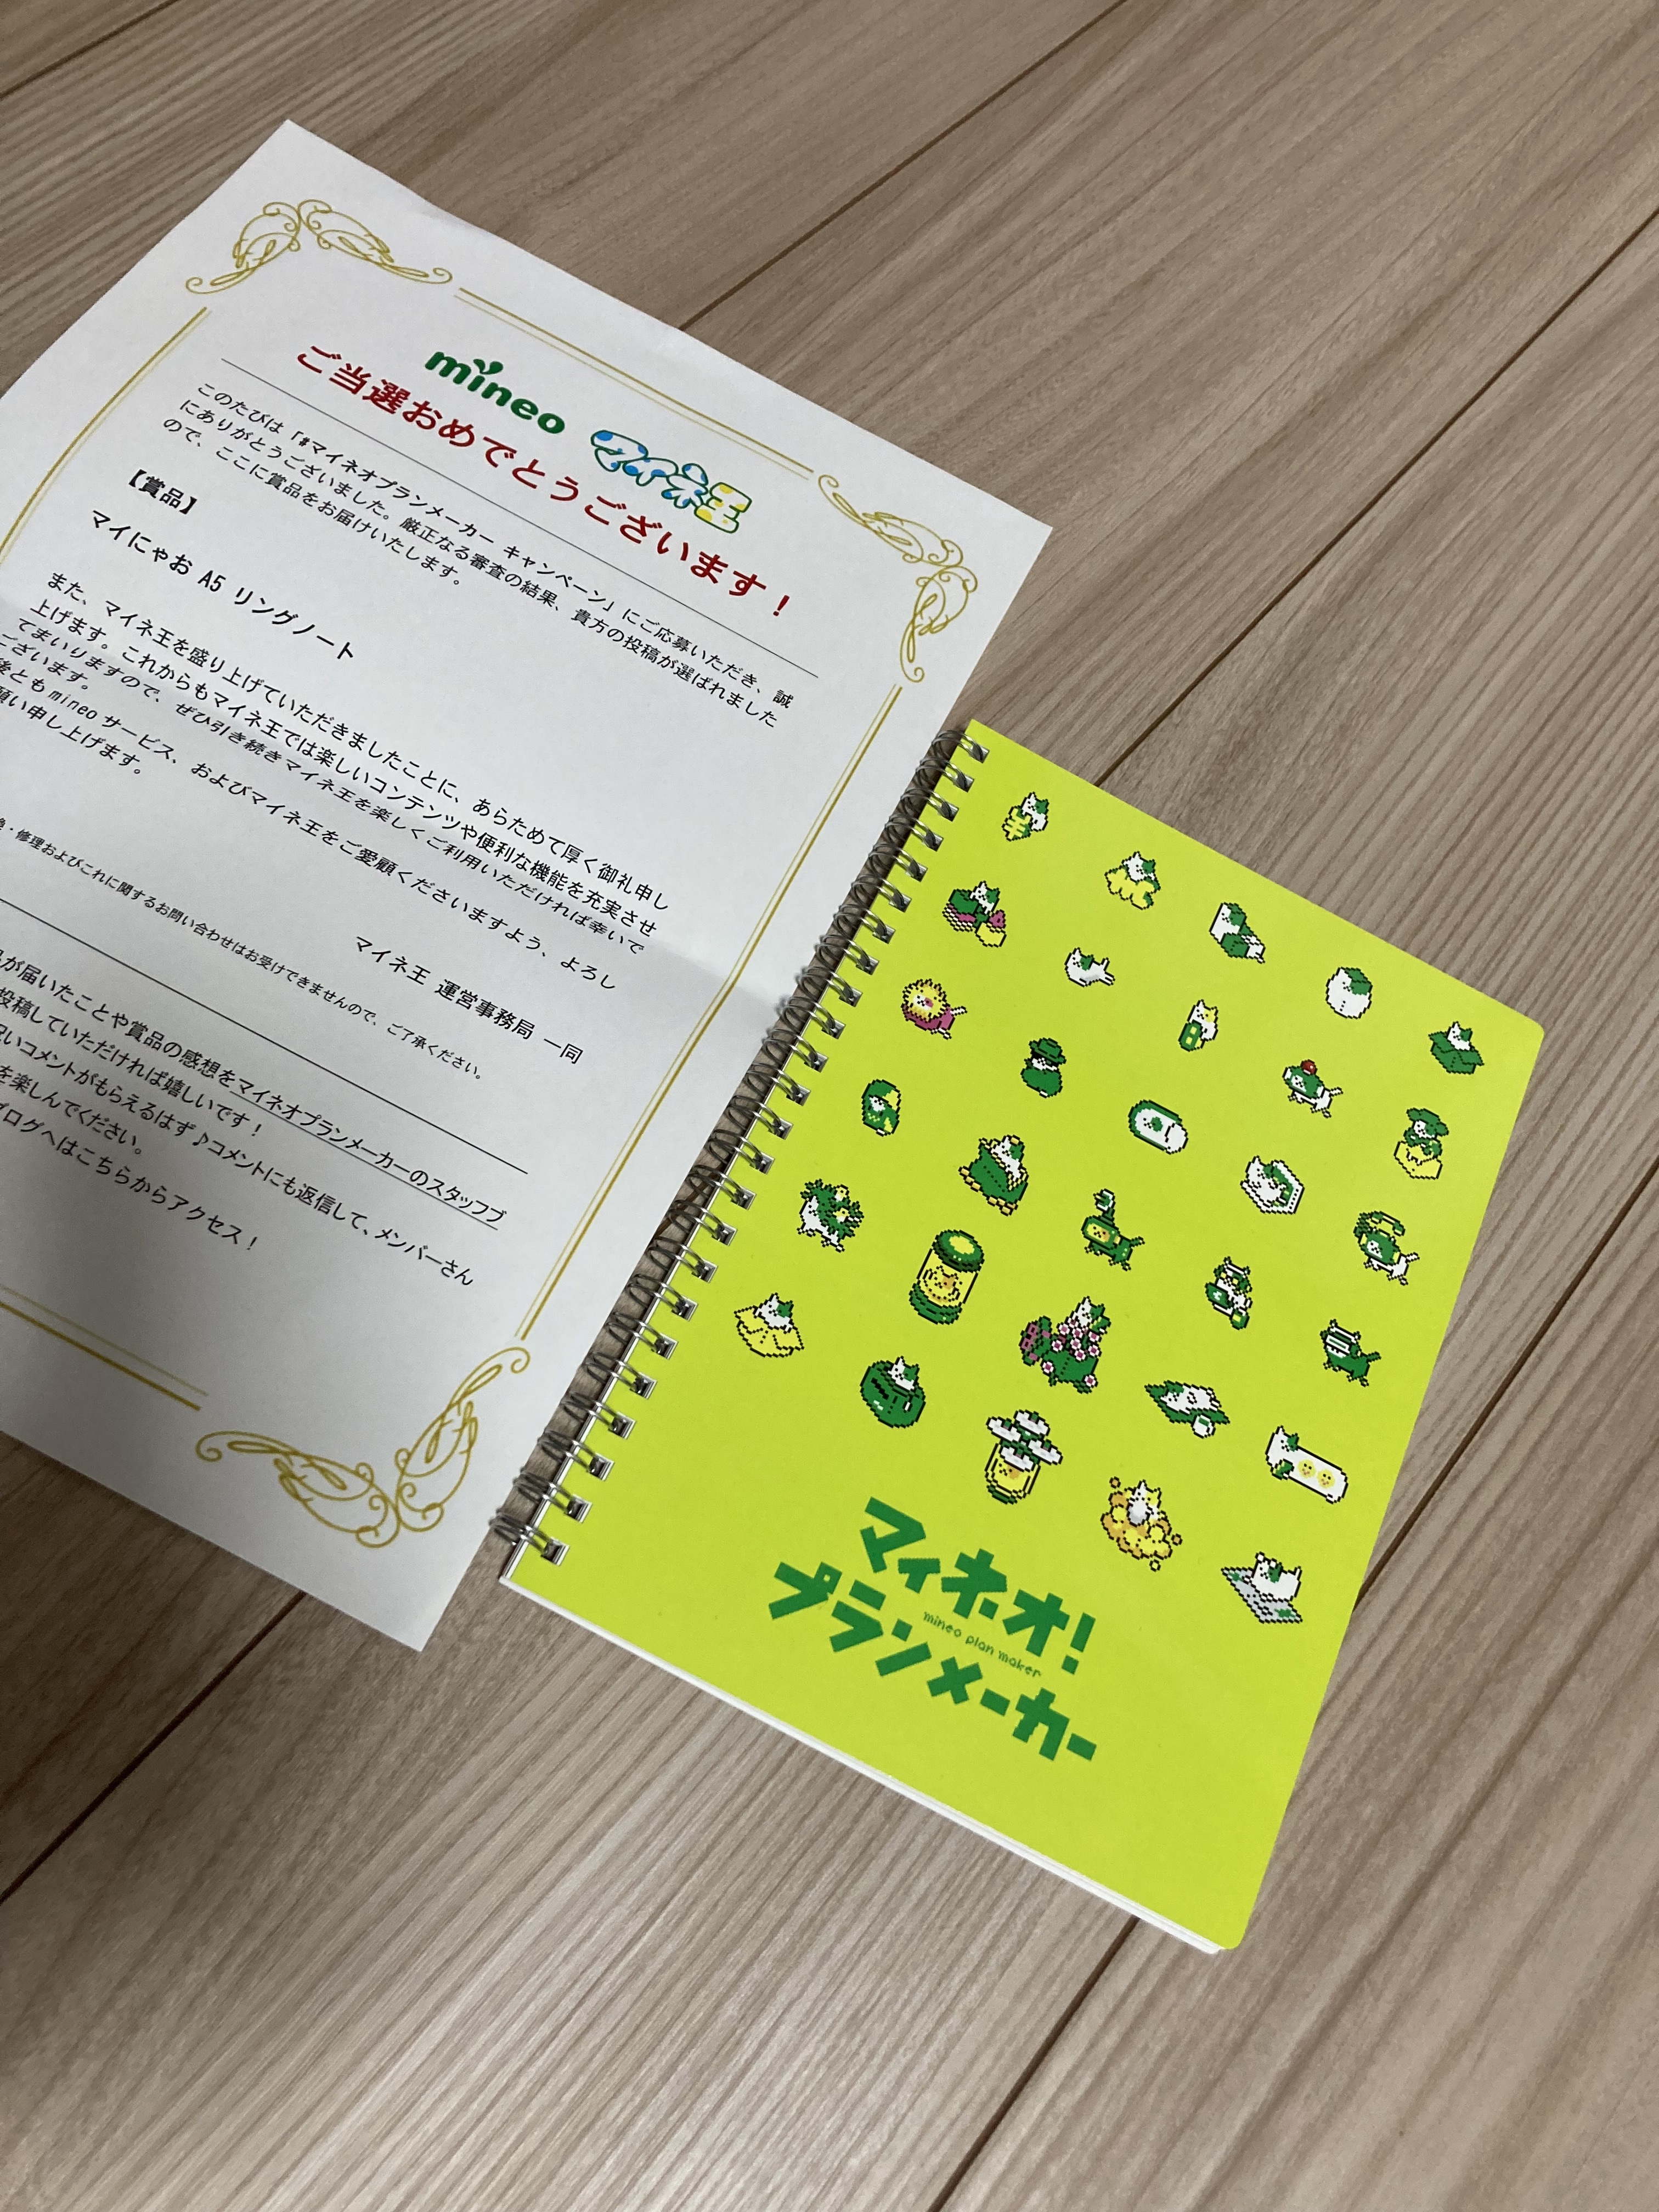 mineo マイネ王
ご当選おめでとうございます！
このたびは「#マイネオプランメーカー キャンペーン」にご応募いただき、誠
にありがとうございました。厳正なる審査の結果、貴方の投稿が選ばれました
ので、ここに賞品をお届けいたします。
【賞品】
マイにゃお A5 リングノート
また、マイネ王を盛り上げていただきましたことに、あらためて厚く御礼申し
上げます。これからもマイネ王では楽しいコンテンツや便利な機能を充実させ
てまいりますので、ぜひ引き続きマイネ王を楽しくご利用いただければ幸いで
ございます。
後ともmineoサービス、およびマイネ王をご愛顧くださいますよう、よろし
願い申し上げます。
マイネ王 運営事務局 一同
・修理およびこれに関するお問い合わせはお受けできませんので、ご了承ください。
が届いたことや賞品の感想をマイネオプランメーカーのスタッフブ
投稿していただければ嬉しいです！
いコメントがもらえるはず♪コメントにも返信して、メンバーさん
を楽しんでください。
ブログへはこちらからアクセス！
マイネオ！
mineo plan maker
プランメーカー